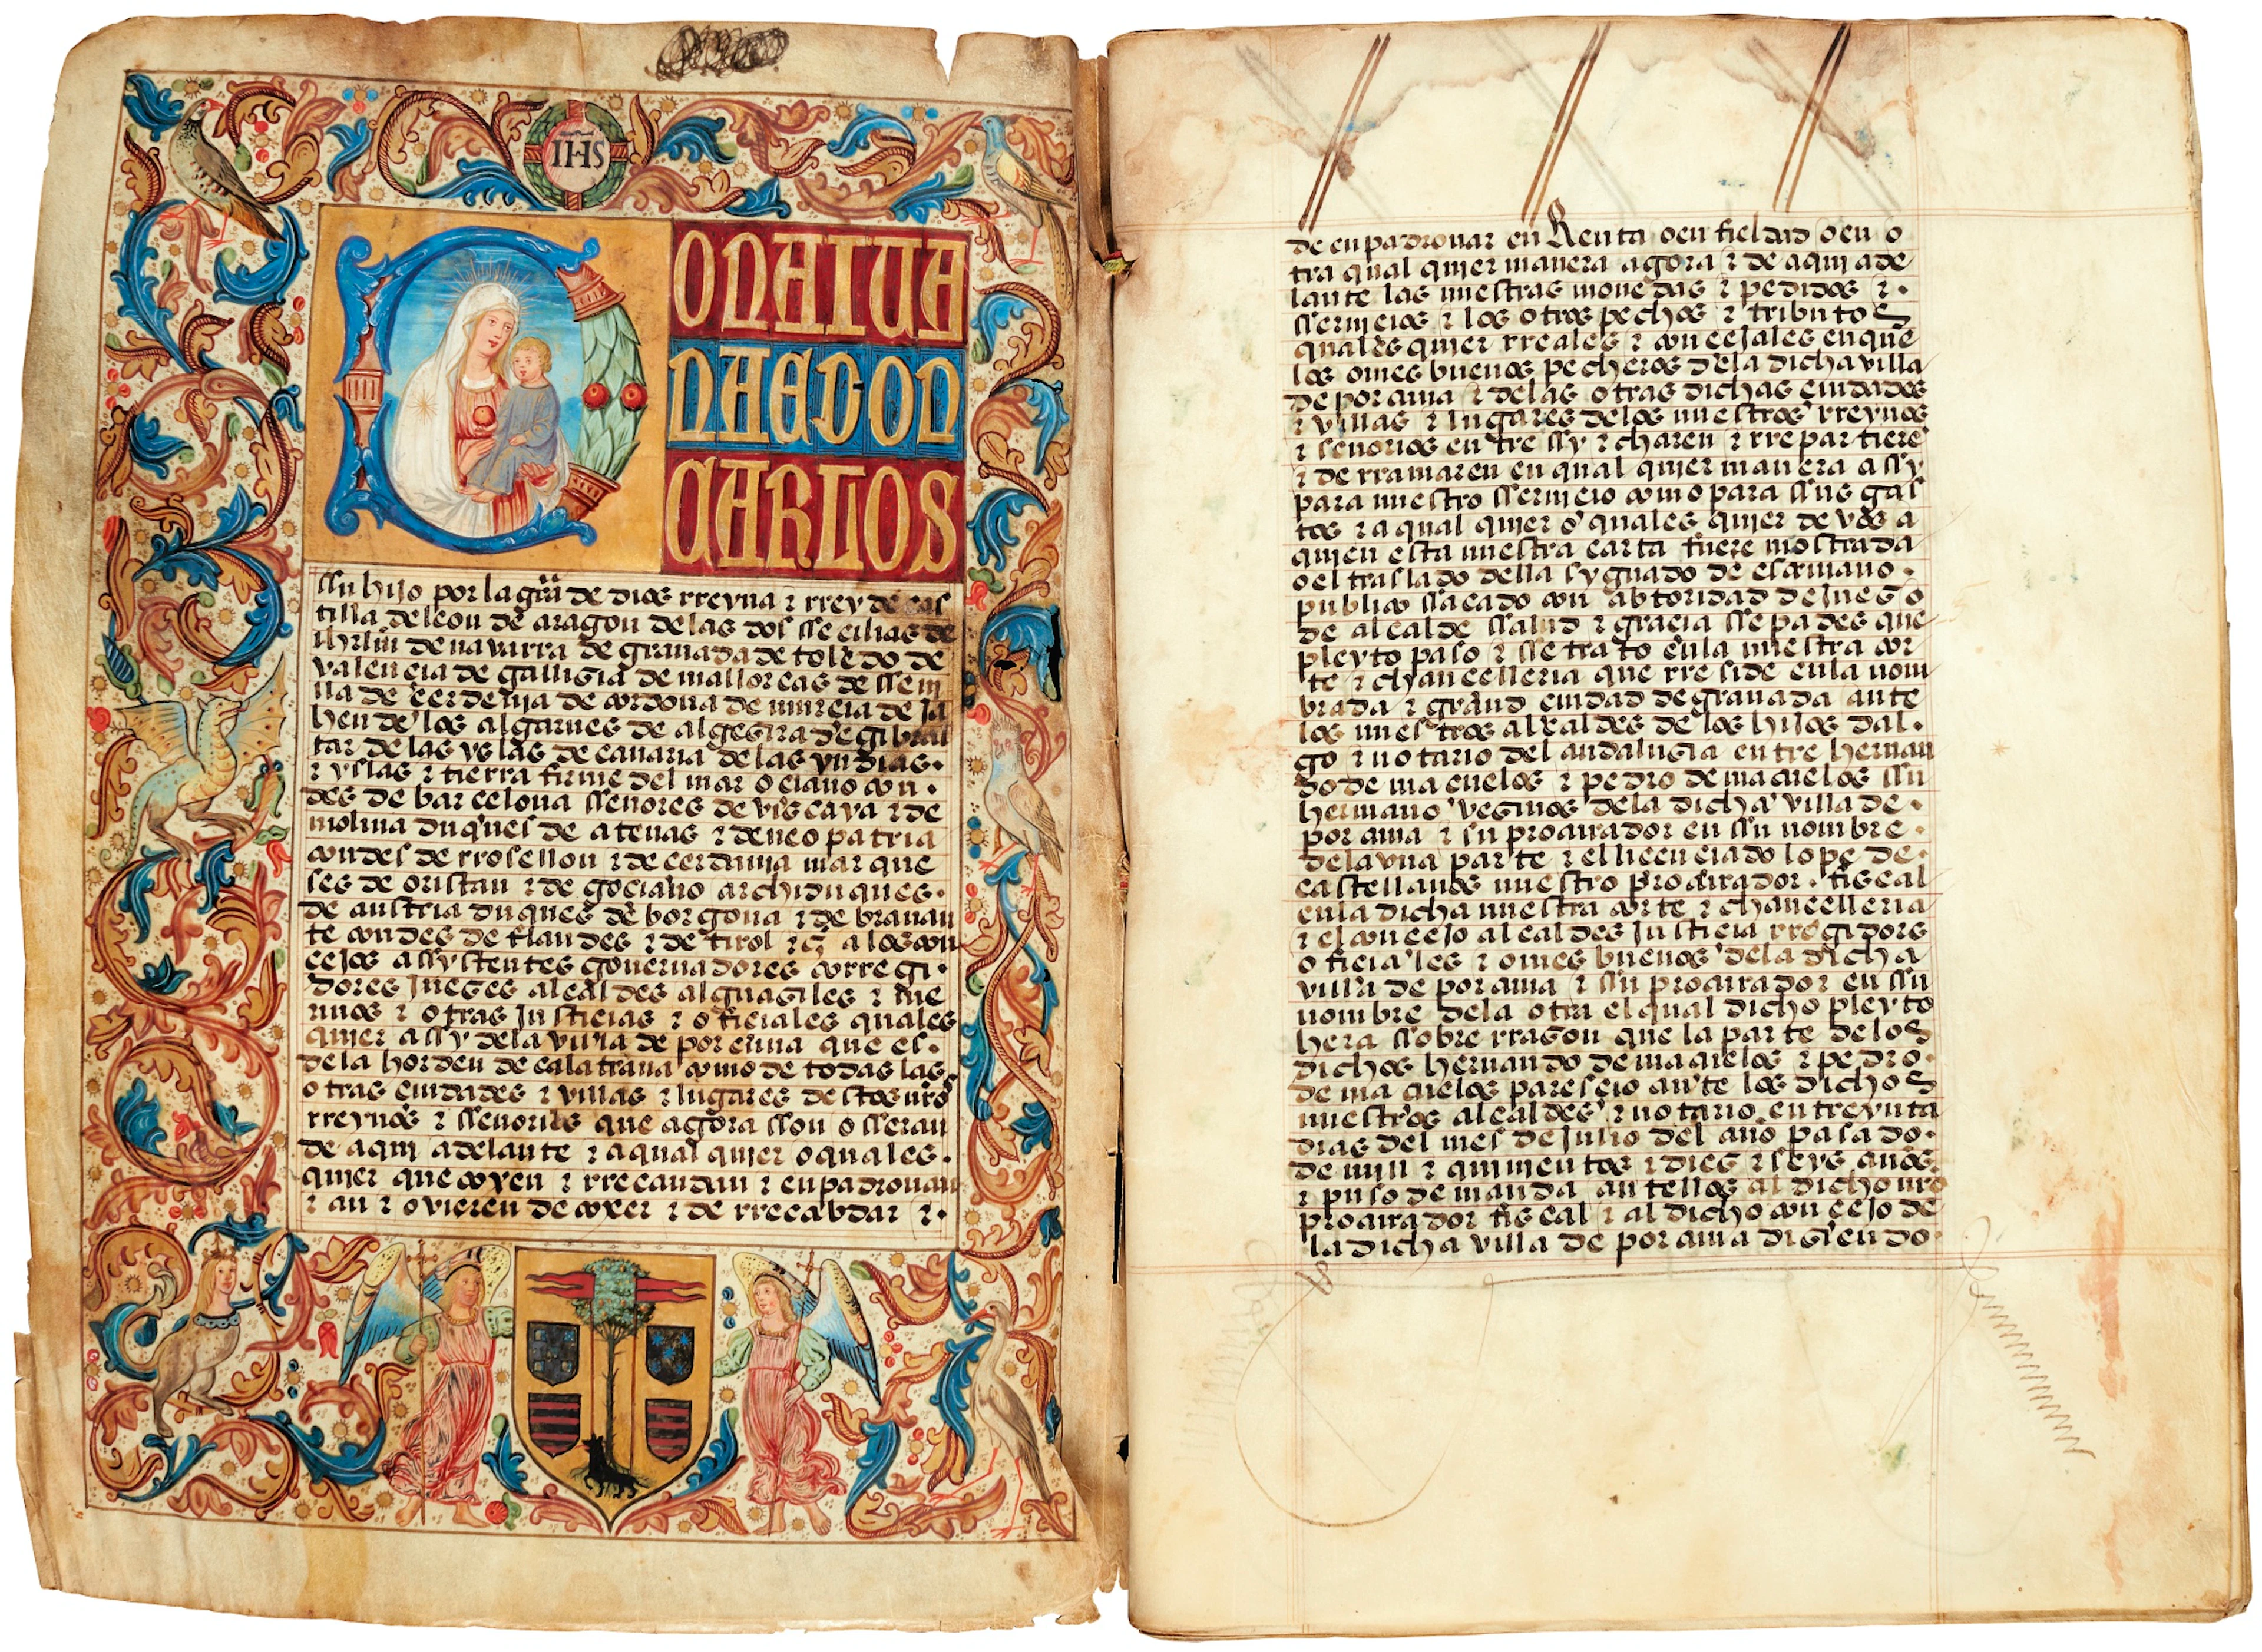 IHS
DONA IUA
NA E DON
CARLOS
ssu hijo por la gr̃a de dios rreyna ⁊ rrey de cas
tilla de leon de aragon de las dos ssecilias de
ihrlm̃ de navarra de granada de toledo de
valencia de galligia de mallorcas de ssevi
lla de cerdenja de cordova de murcia de ja
hen de los algarves de algezira de gibral
tar de las yslas de canaria de las yndias
⁊ yslas ⁊ tierra firme del mar oceano con
des de barcelona ssenores de viscaya ⁊ de
molina duques de atenas ⁊ de neopatria
condes de rrosellon ⁊ de cerdania marque
ses de oristan ⁊ de gociano archiduques
de austria duques de borgona ⁊ de bravan
te condes de flandes ⁊ de tirol ⁊ç̃ a los con
cejos assystentes governadores corregi
dores jueges alcaldes alguagiles ⁊ me
rinos ⁊ otras justicias ⁊ oficiales quales
quier assy de la villa de porcuna que es
de la horden de calatrava como de todas las
otras ciudades ⁊ villas ⁊ lugares destos nr̃os
rreynos ⁊ ssenorios que agora sson o sseran
de aqui adelante ⁊ a qual quier o quales
quier que coxen ⁊ rrecaudan ⁊ enpadronan
⁊ an ⁊ ovieren de coxer ⁊ de rrecabdar ⁊
de enpadronar en Renta o en fieldad o en o
tra qual quier manera agora ⁊ de aqui ade
lante las nuestras monedas ⁊ pedidos ⁊
sservicios ⁊ los otros pechos ⁊ tributos
quales quier rreales ⁊ concejales en que
los omes buenos pecheros de la dicha villa
de porcuna ⁊ de las otras dichas ciudades
⁊ villas ⁊ lugares de los nuestros rreynos
⁊ senorios entre ssy ⁊ charen ⁊ rrepartierẽ
⁊ derramaren en qual quier manera assy
para nuestro sservicio como para ssus gas
tos ⁊ a qual quier o quales quier de vos a
quien esta nuestra carta fuere mostrada
o el traslado della sygnado de escrivano
publico ssacado con abtoridad de juego
de alcalde ssalud ⁊ gracia ssepades que
pleyto paso ⁊ sse trato en la nuestra cor
te ⁊ chancelleria que rreside en la nom
brada ⁊ grand ciudad de granada ante
los nuestros alcaldes de los hijos dal
go ⁊ notario del andalugia entre hernan
do de macuelos ⁊ pedro de macuelos ssu
hermano veginos de la dicha villa de
porcuna ⁊ su procurador en ssu nombre
de la una parte ⁊ el licenciado lope de
castellanos nuestro procurador fiscal
en la dicha nuestra corte ⁊ chancelleria
⁊ el concejo alcaldes justicia rregidores
oficiales ⁊ omes buenos de la dicha
villa de porcuna ⁊ ssu procurador en ssu
nombre de la otra el qual dicho pleyto
hera ssobre rragon que la parte de los
dichos hernando de macuelos ⁊ pedro
de macuelos parescio ante los dichos
nuestros alcaldes ⁊ notario en treynta
dias del mes de julio del ano pasado
de mill ⁊ quinientos ⁊ dieg ⁊ seys anos
⁊ puso demanda antellos al dicho nr̃o
procurador fiscal ⁊ al dicho concejo de
la dicha villa de porcuna digiendo